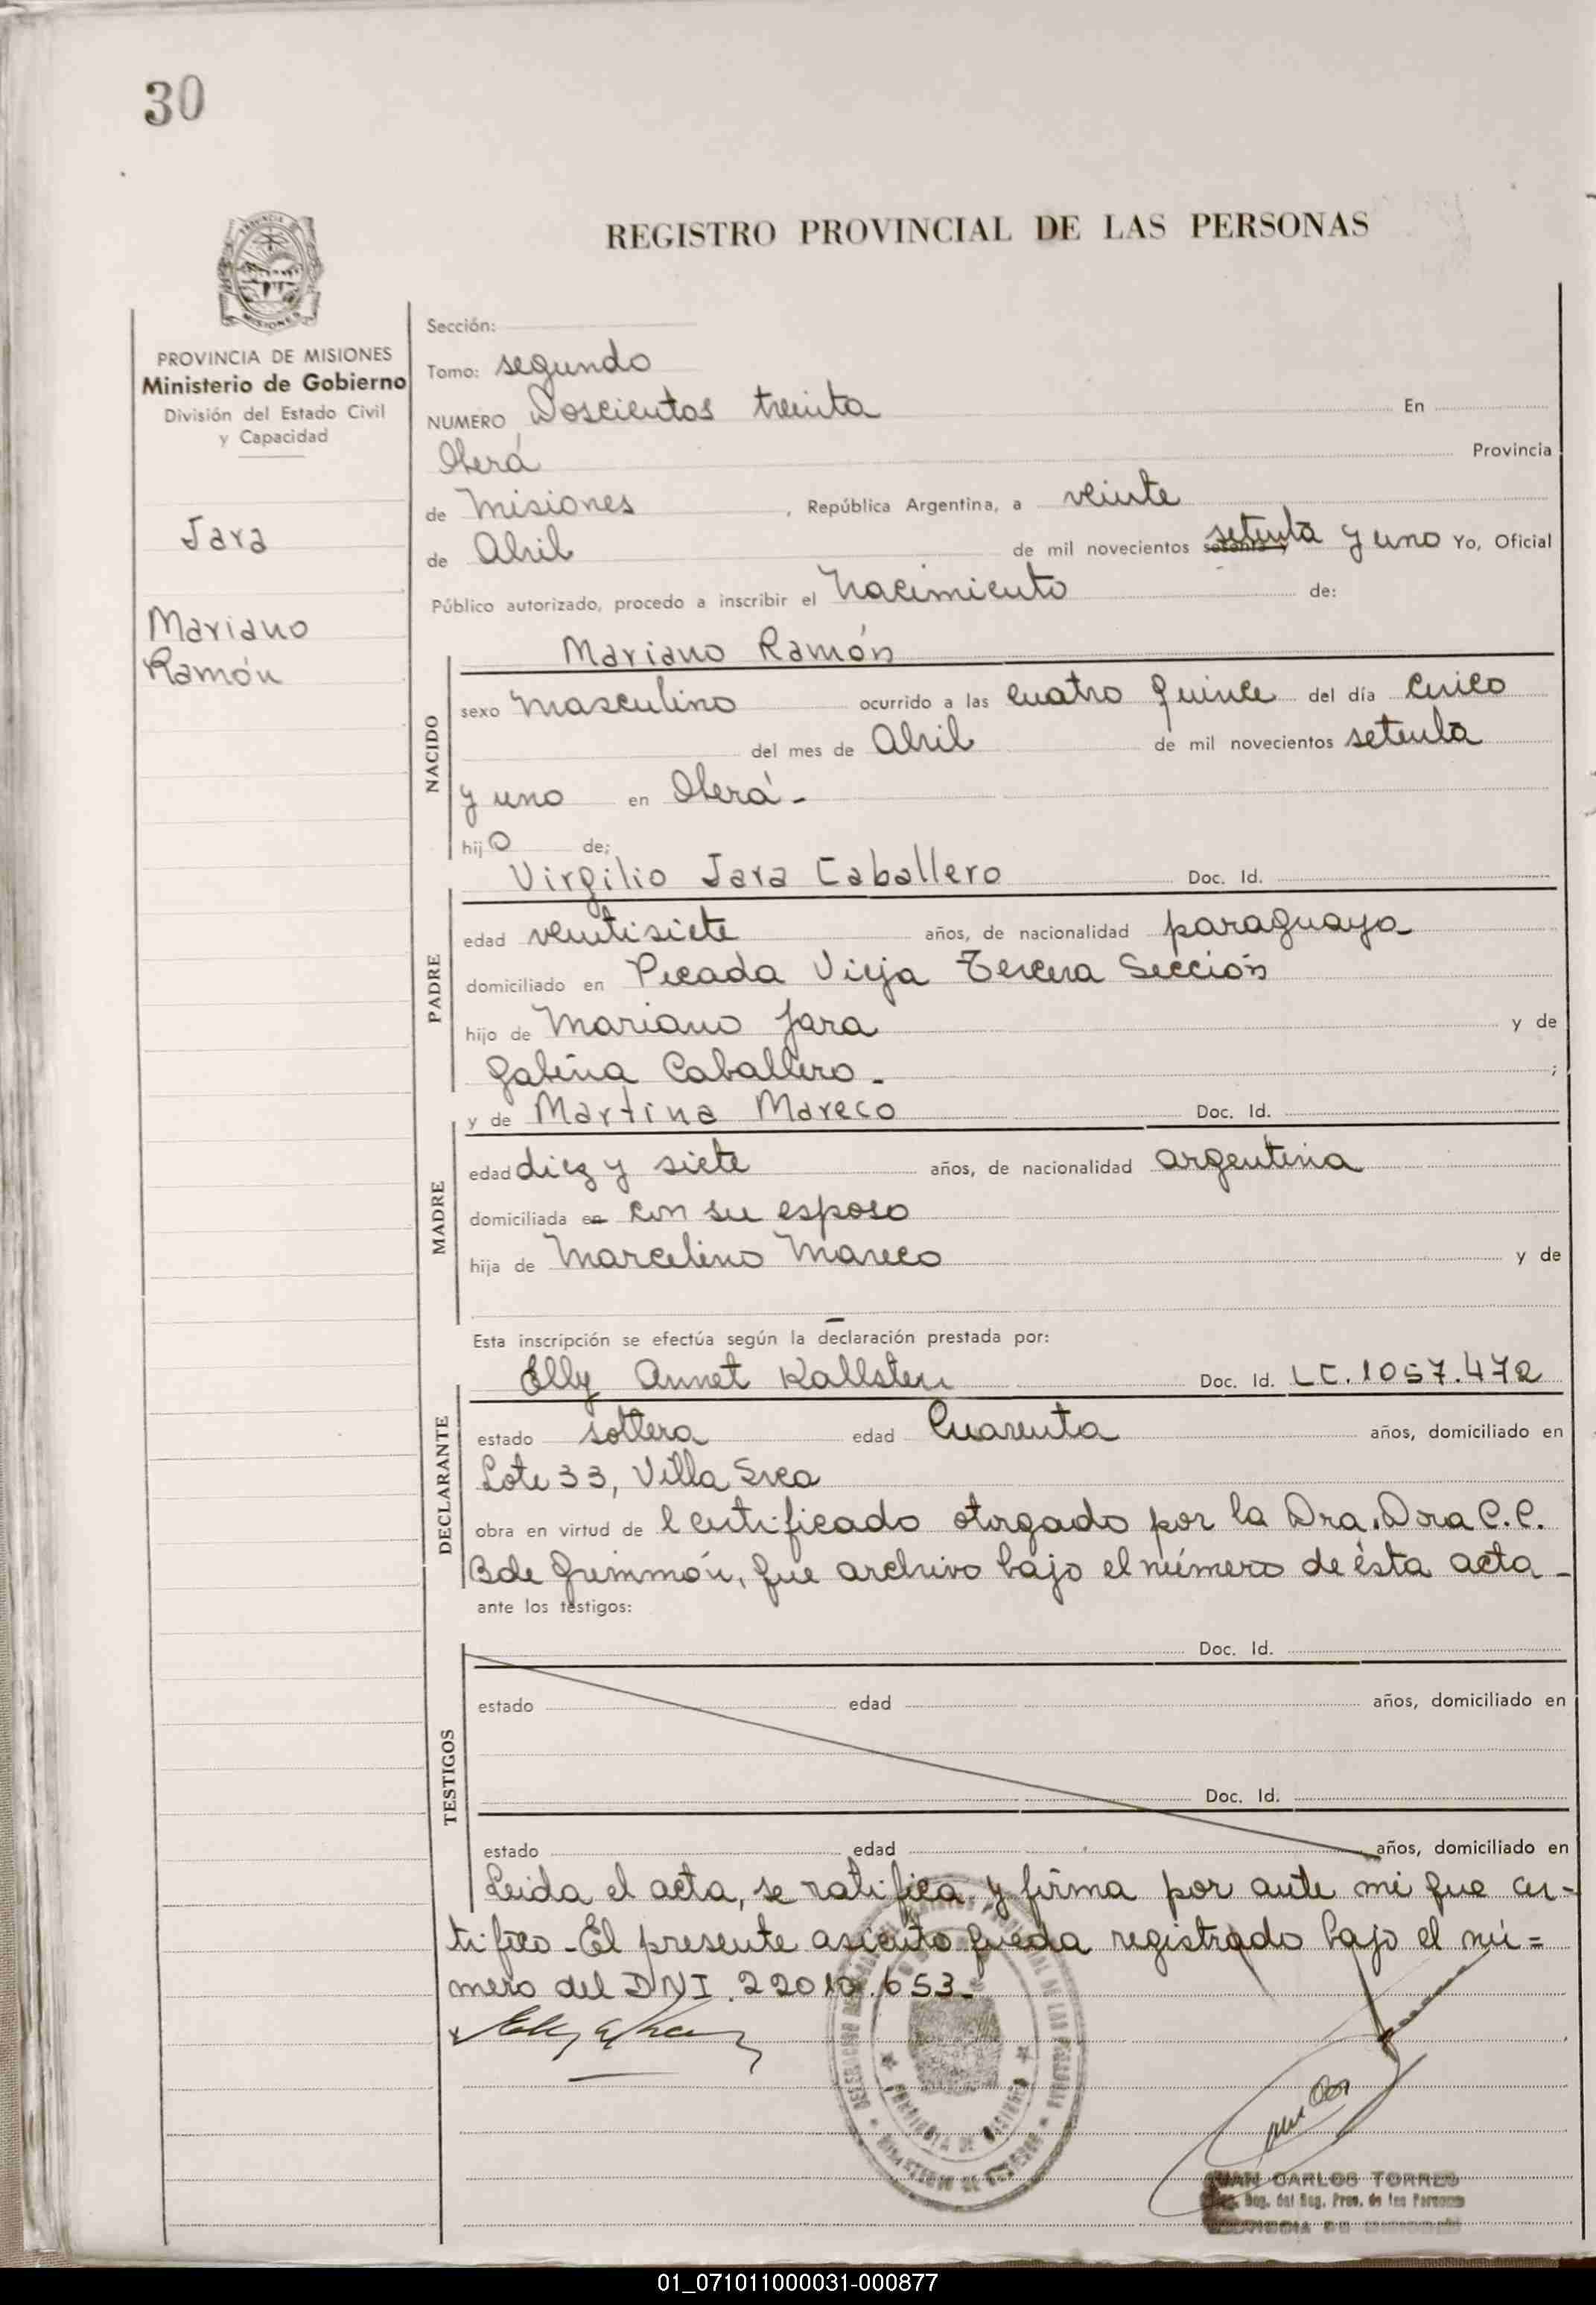 30
REGISTRO PROVINCIAL DE LAS PERSONAS
PROVINCIA DE MISIONES
Ministerio de Gobierno
División del Estado Civil
y Capacidad
Jara
Mariano
Ramón
Sección:
Tomo: segundo
NUMERO Doscientos treinta En
Oberá Provincia
de Misiones , República Argentina, a veinte
de Abril de mil novecientos setenta y setenta y uno Yo, Oficial
Público autorizado, procedo a inscribir el Nacimiento de:
Mariano Ramón
NACIDO
sexo masculino ocurrido a las cuatro quince del día cinco
del mes de Abril de mil novecientos setenta
y uno en Oberá -
hijo de:
Virgilio Jara Caballero Doc. Id.
PADRE
edad veintisiete años, de nacionalidad paraguaya
domiciliado en Picada Vieja Tercera Sección
hijo de Mariano Jara y de
Gabina Caballero - ;
y de Martina Mareco Doc. Id.
MADRE
edad diez y siete años, de nacionalidad argentina
domiciliada en con su esposo
hija de Marcelino Mareco y de
Esta inscripción se efectúa según la declaración prestada por:
Elly Annet Kallsten Doc. Id. LC. 1057.472
DECLARANTE
estado soltera edad Cuarenta años, domiciliado en
Lote 33, Villa Svea
obra en virtud de l certificado otorgado por la Dra. Dora C. C.
B de que archivo bajo el número de ésta acta -
ante los testigos:
Doc. Id.
TESTIGOS
estado edad años, domiciliado en
Doc. Id.
estado edad años, domiciliado en
Leida el acta, se ratifica y firma por ante mi que cer-
tifico - El presente asiento queda registrado bajo el nú=
mero del DNI. 22010.653 -
JUAN CARLOS TORRES
Reg. Prov. de las Personas
01_071011000031-000877